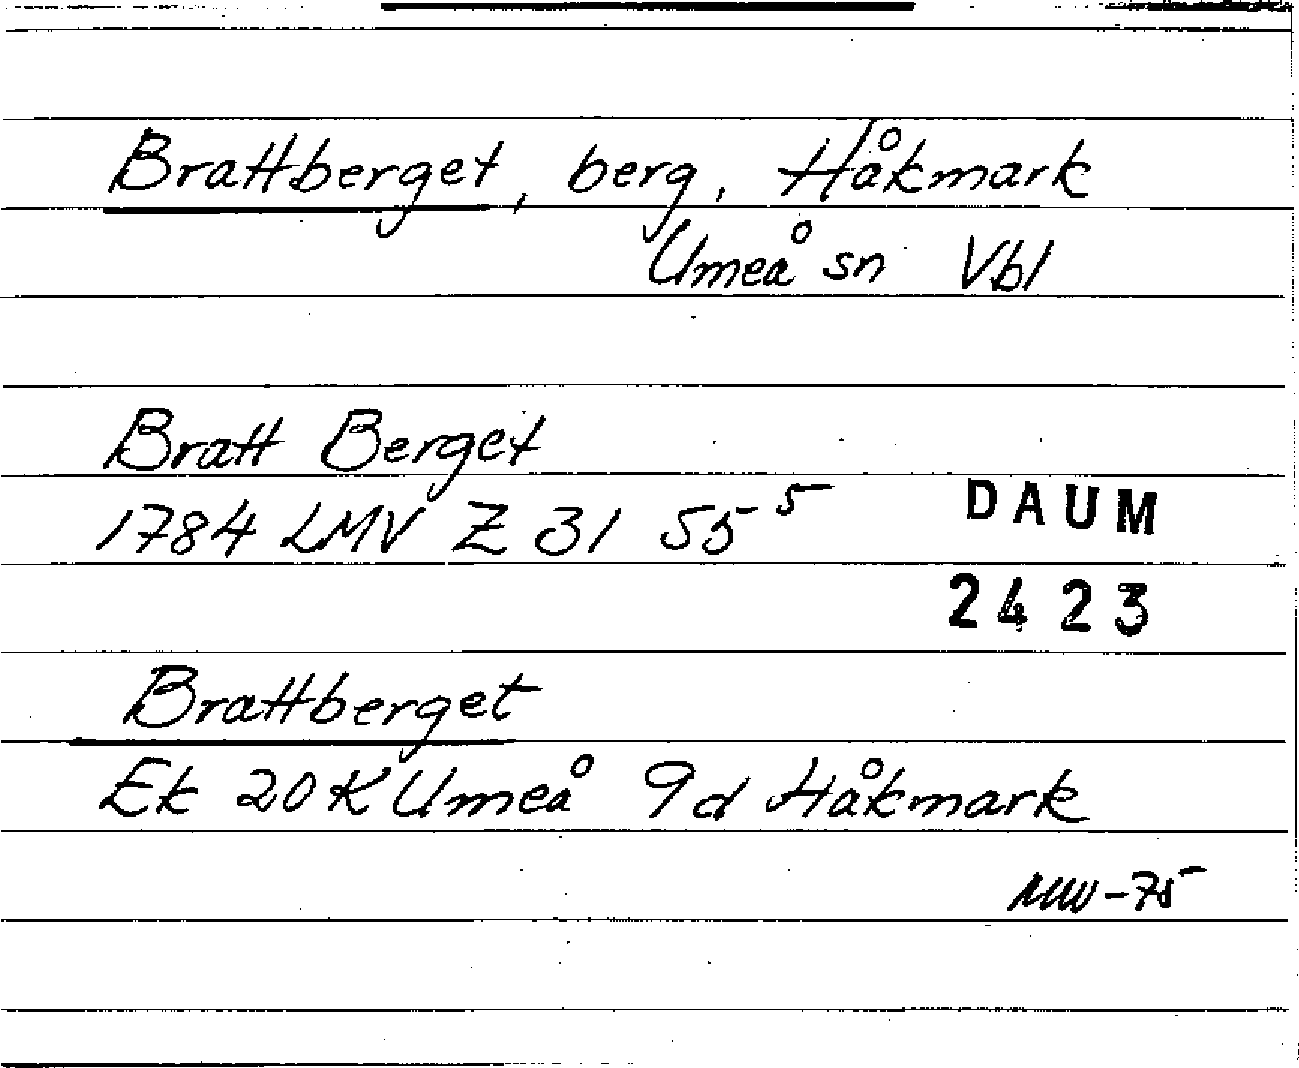 Brattberget, berg, Håkmark
Umeå sn Vbl
Bratt Berget
1784 LMV Z 31 55⁵
DAUM
2423
Brattberget
Ek 20K Umeå 9d Håkmark
-75